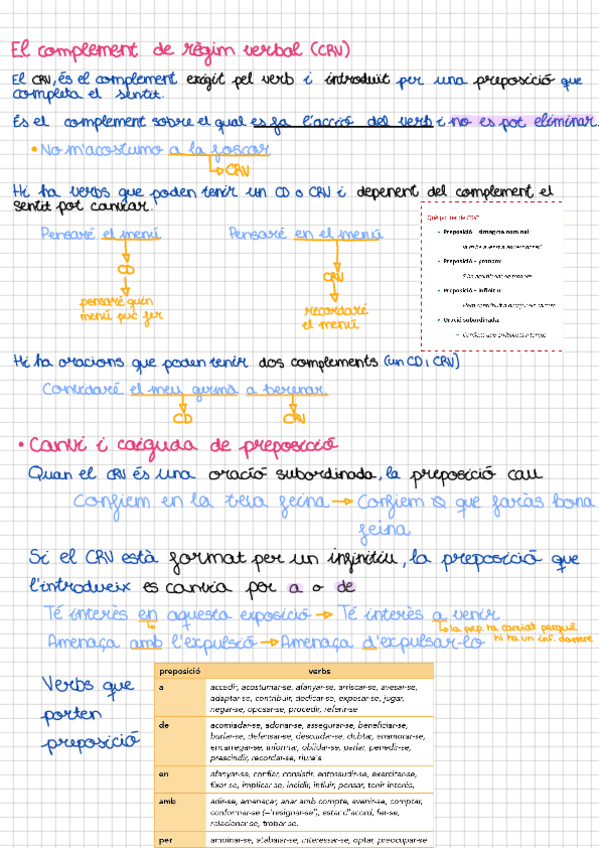 El complement de règim verbal (CRV)
El CRV, és el complement exigit pel verb i introduït per una preposició que
completa el sentit.
És el complement sobre el qual es fa l'acció del verb i no es pot eliminar.
• No m'acostumo a la foscor
CRV
Hi ha verbs que poden tenir un CD o CRV i depenent del complement el
sentit pot canviar.
Pensaré el menú
Pensaré en el menú
CD
CRV
pensaré quin
menú puc fer
recordaré
el menú
Preposició + sintagma nominal
Preposició + pronom
Preposició + infinitiu
Oració subordinada
Hi ha oracions que poden tenir dos complements (un CD i CRV)
Convidaré el meu germà a berenar
CD
CRV
• Canvi i caiguda de preposició
Quan el CRV és una oració subordinada, la preposició cau
Confiem en la teva feina → Confiem que faràs bona
feina
Si el CRV està format per un infinitiu, la preposició que
l'introdueix es canvia per a o de
Té interès en aquesta exposició → Té interès a venir
la prep. ha canviat perquè
hi ha un inf. darrere
Amenaça amb l'expulsió → Amenaça d'expulsar-lo
Verbs que
porten
preposició
preposició verbs
a accedir, acostumar-se, afanyar-se, arriscar-se, avesar-se,
adaptar-se, contribuir, dedicar-se, exposar-se, jugar,
negar-se, oposar-se, procedir, referir-se
de acomiadar-se, adonar-se, assegurar-se, beneficiar-se,
burlar-se, defensar-se, descuidar-se, dubtar, enamorar-se,
encarregar-se, informar, oblidar-se, parlar, penedir-se,
prescindir, recordar-se, riure's
en afanyar-se, confiar, consistir, entossudir-se, exercitar-se,
fixar-se, implicar-se, incidir, influir, pensar, tenir interès,
amb adir-se, amenaçar, anar amb compte, avenir-se, comptar,
conformar-se (="resignar-se"), estar d'acord, fer-se,
relacionar-se, trobar-se.
per amoïnar-se, atabalar-se, interessar-se, optar, preocupar-se